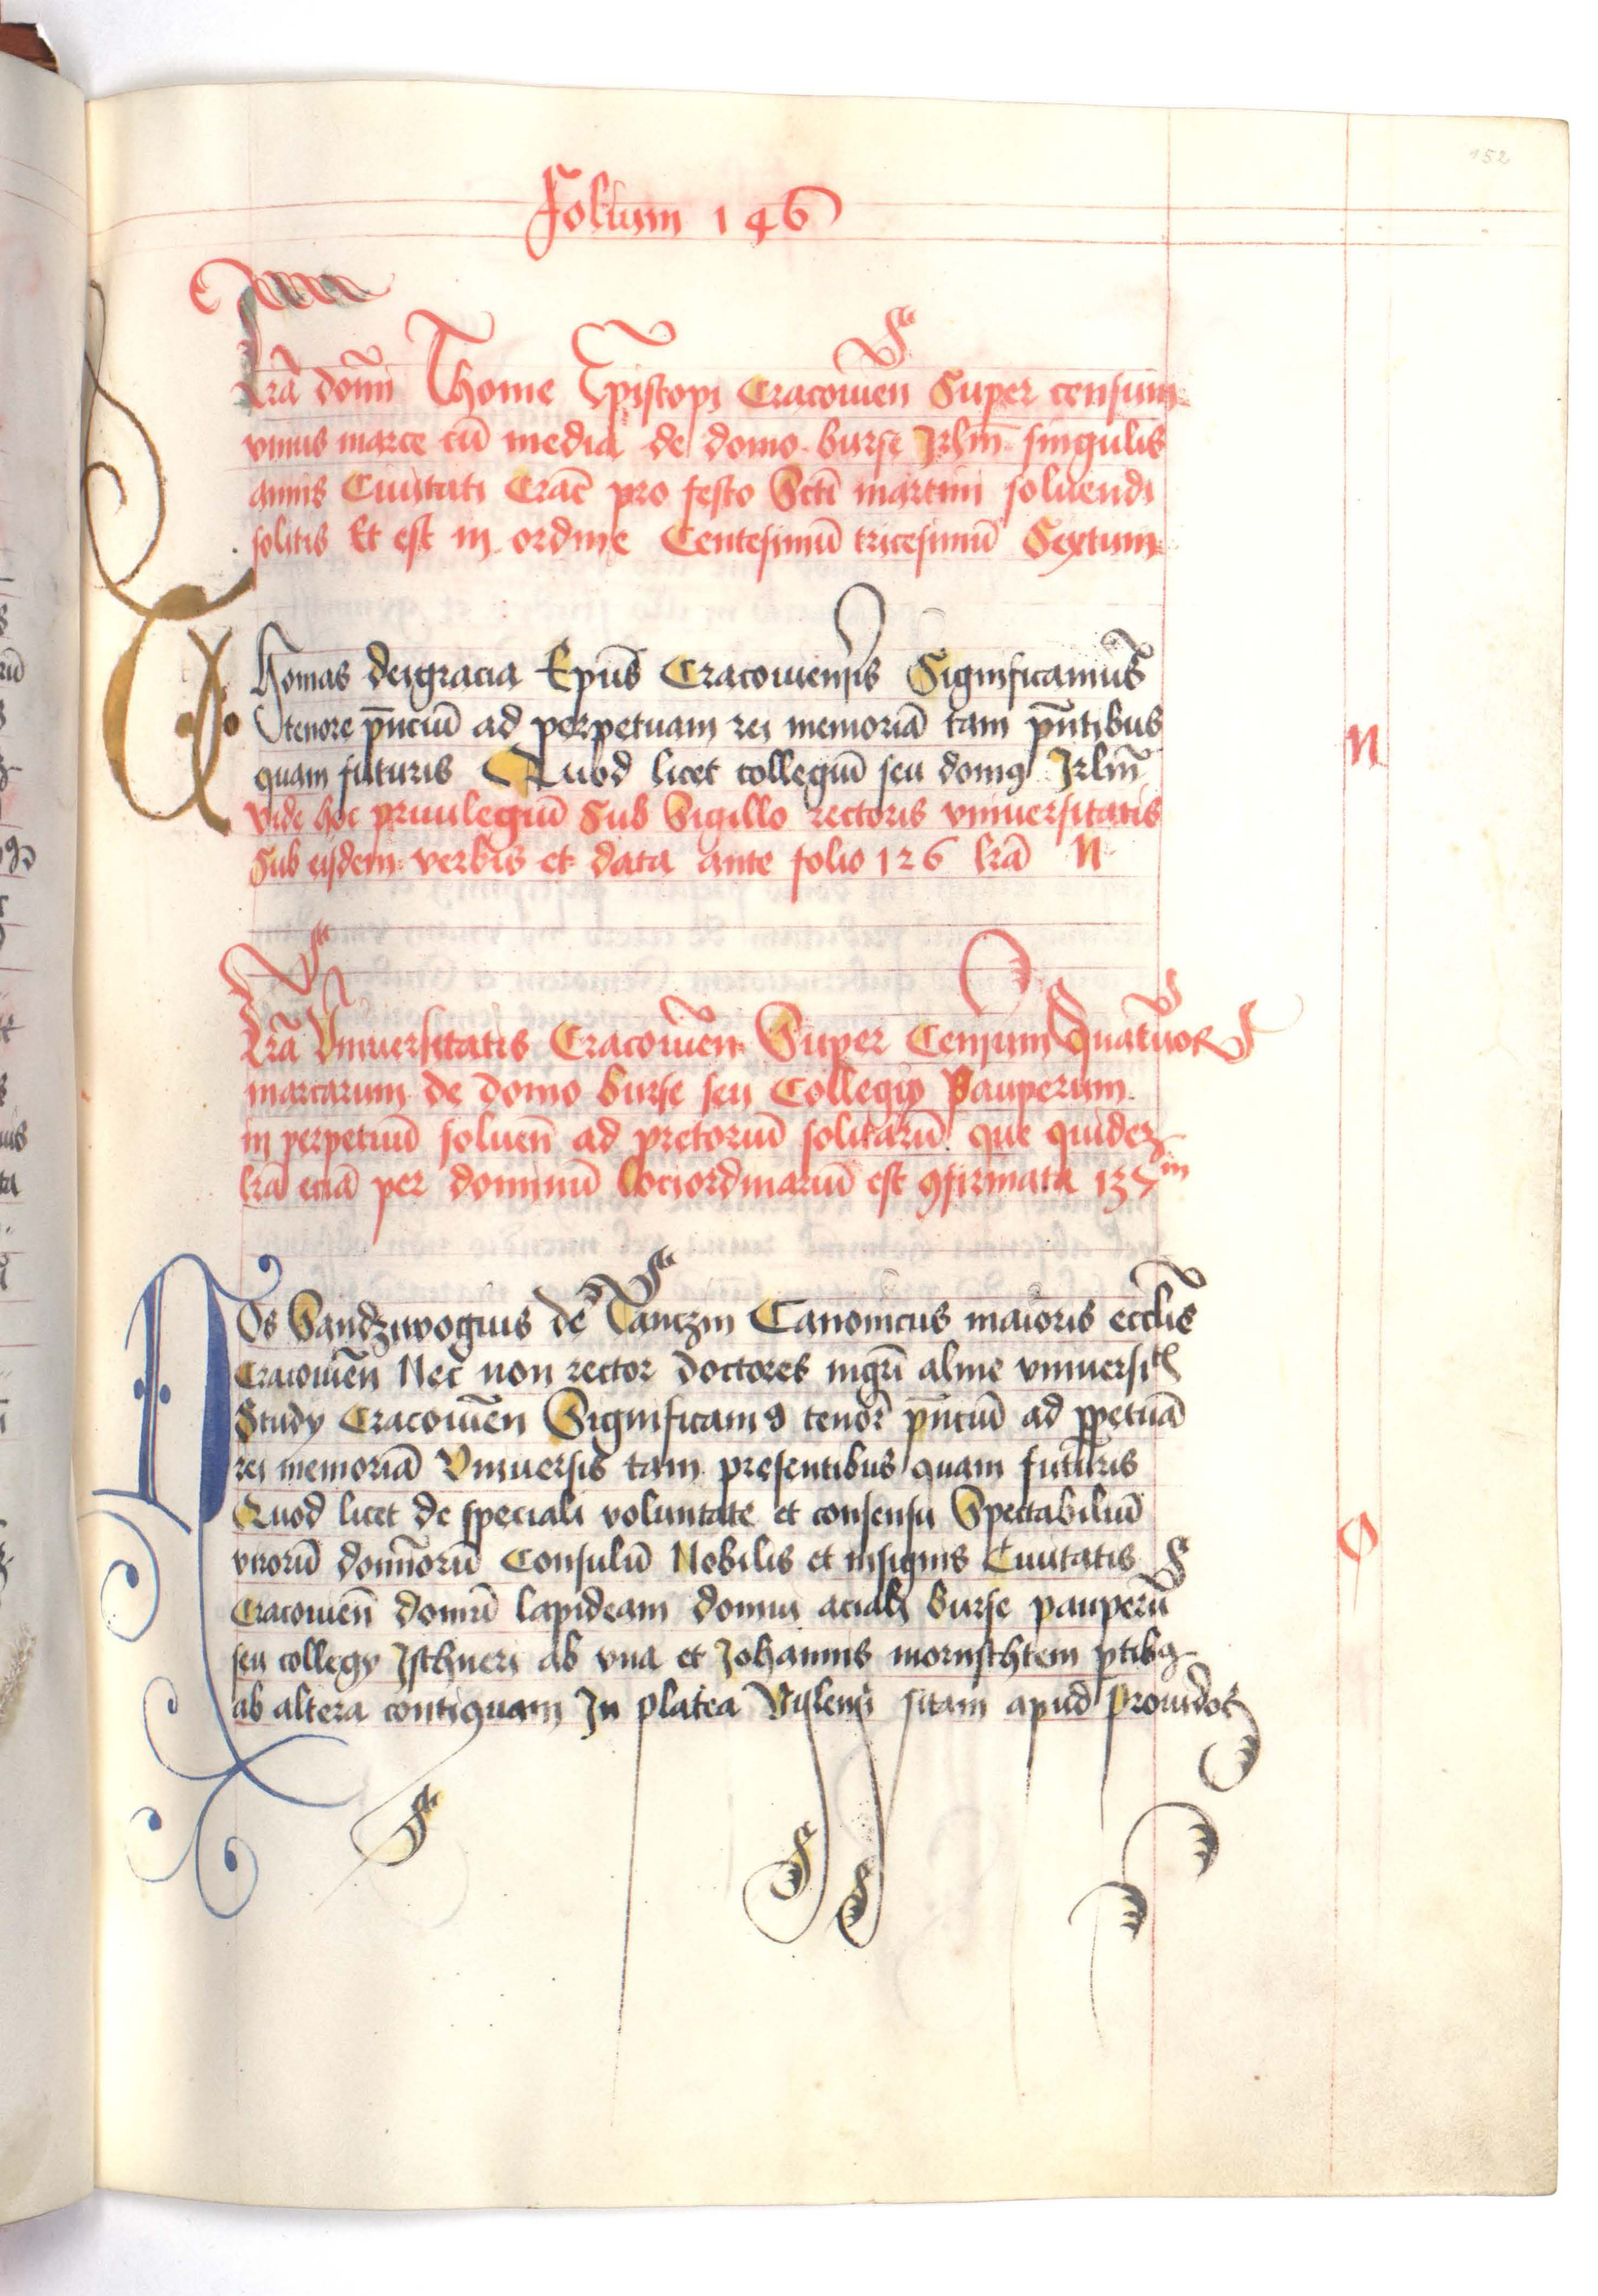 152
Folium 146
Lrā domī Thome Episcopi Cracouien Super censum
vnius marce cū media de domo burse Jrlm̄ singulis
annis Ciuitati Crac̄ pro festo Scti martini soluendi
solitis Et est in ordine Centesimū tricesimū Sextum
Thomas deigracia Epūs Cracouiensis Significamus
tenore pn̄ciū ad perpetuam rei memoriā tam pn̄tibus
quam futuris Quod licet collegiū seu domꝯ Jrlm̄
N
Vide hoc priuilegiū Sub Sigillo rectoris vniuersitatis
Sub eisdem verbis et data ante folio 126 lrā N
Lrā Vniuersitatis Cracouien̄ Super Censum Quatuor
marcarum de domo burse seu Collegio Pauperum
in perpetuū soluen̄ ad pretoriū solitarū que quidez
lrā eciā per dominū lociordinariū est ꝯfirmata 137m
Nos Sandziwogius de Tanczin Canonicus maioris eccl̄ie
Cracouien̄ Nec̄ non rector doctores mgr̄i alme vniuersitꝭ
Study Cracouien̄ Significamꝯ tenor̄ pn̄ciū ad ꝑpetuā
rei memoriā Vniuersis tam presentibus quam futuris
Quod licet de speciali voluntate et consensu Spectabiliū
O
virorū domīorū Consulū Nobilis et insignis Ciuitatis
Cracouien̄ domū lapideam domui aciali burse pauperū
seu collegy Isthneri ab vna et Johannis mornschtein ꝑtibꝯ
ab altera contiguam In platea Vislensi sitam apud prouidos